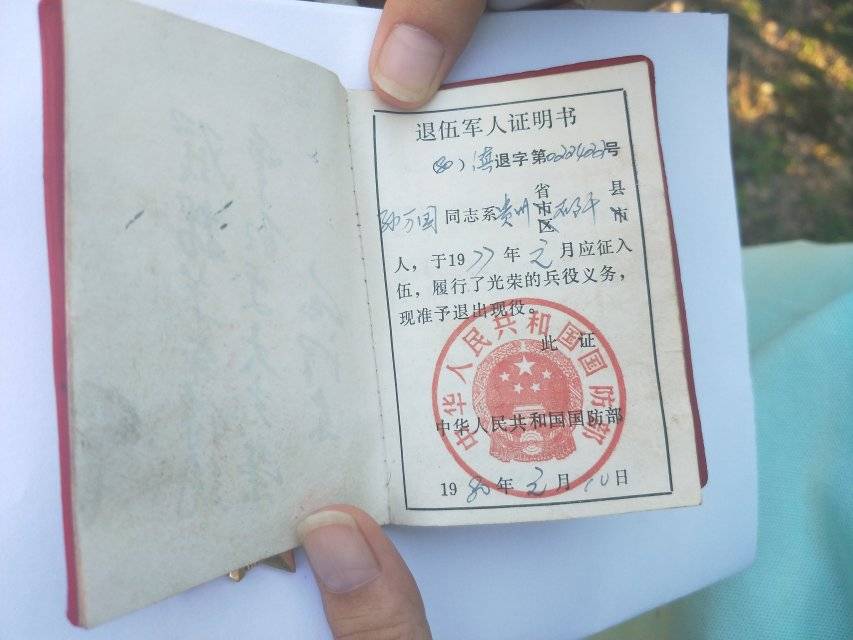 退伍军人证明书
(80)滇退字第0224027号
孙万国同志系贵州省市区石阡县市
人，于1977年元月应征入
伍，履行了光荣的兵役义务，
现准予退出现役。
此证
中华人民共和国国防部
中华人民共和国国防部
1980年元月10日